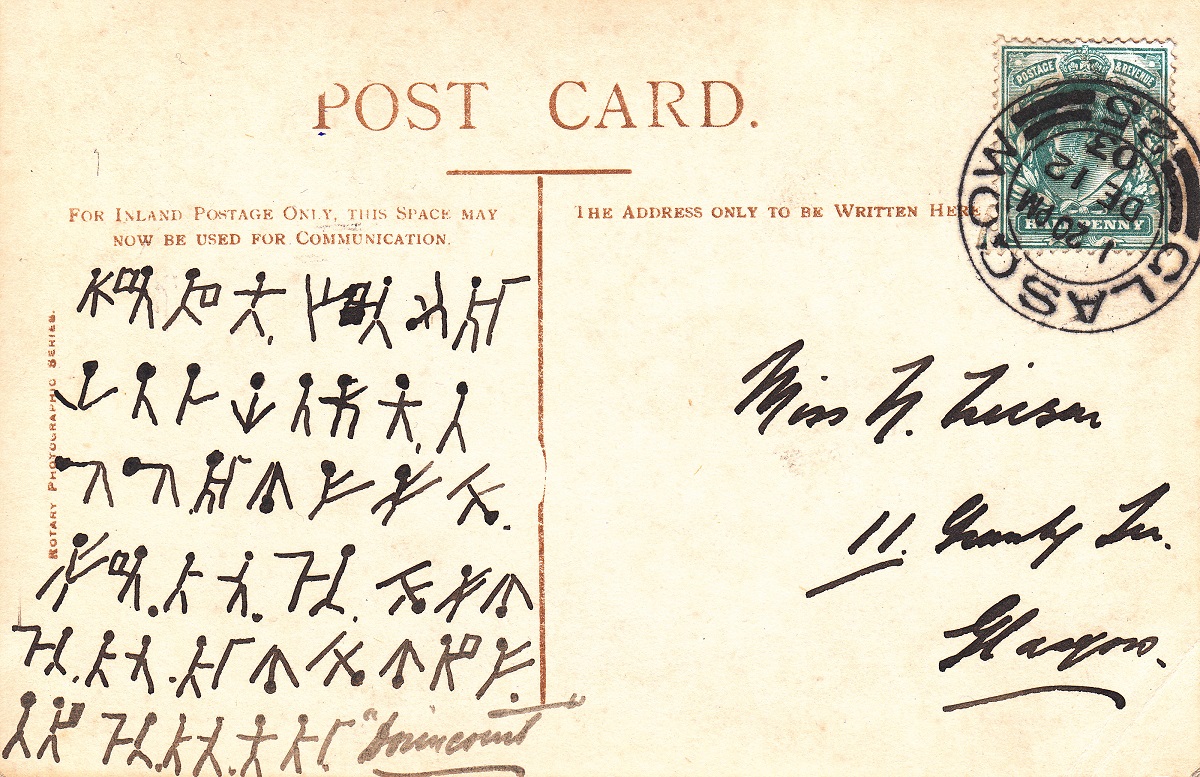 POST CARD.
POSTAGE & REVENUE
HALFPENNY
GLASGOW
1 20 PM
DE 12
03
25
FOR INLAND POSTAGE ONLY, THIS SPACE MAY
NOW BE USED FOR COMMUNICATION.
THE ADDRESS ONLY TO BE WRITTEN HERE
ROTARY PHOTOGRAPHIC SERIES.
Miss N.
11. Granby Ter.
Glasgow.
"Dorincourt"